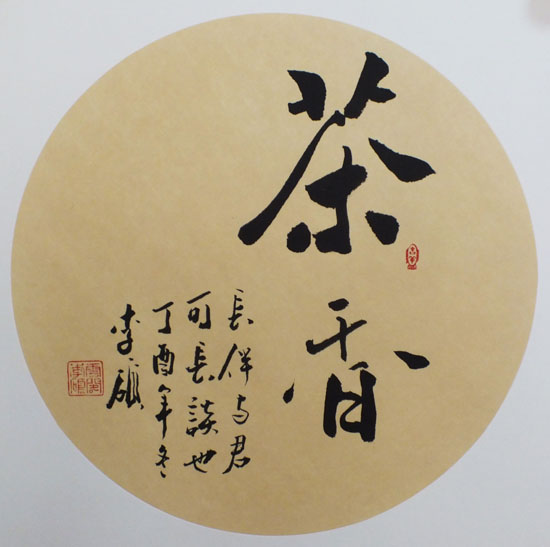 茶香
長伴与君
可長談也
丁酉年冬
李碩